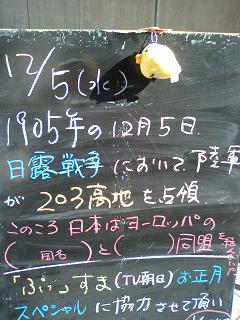 12/5(水)
1905年の12月5日
日露戦争において、陸軍
が 203高地を占領
このころ日本はヨーロッパの
( 国名 )と( )同盟を
「ぷっ」すま(TV朝日)お正月
スペシャルに協力させて頂い